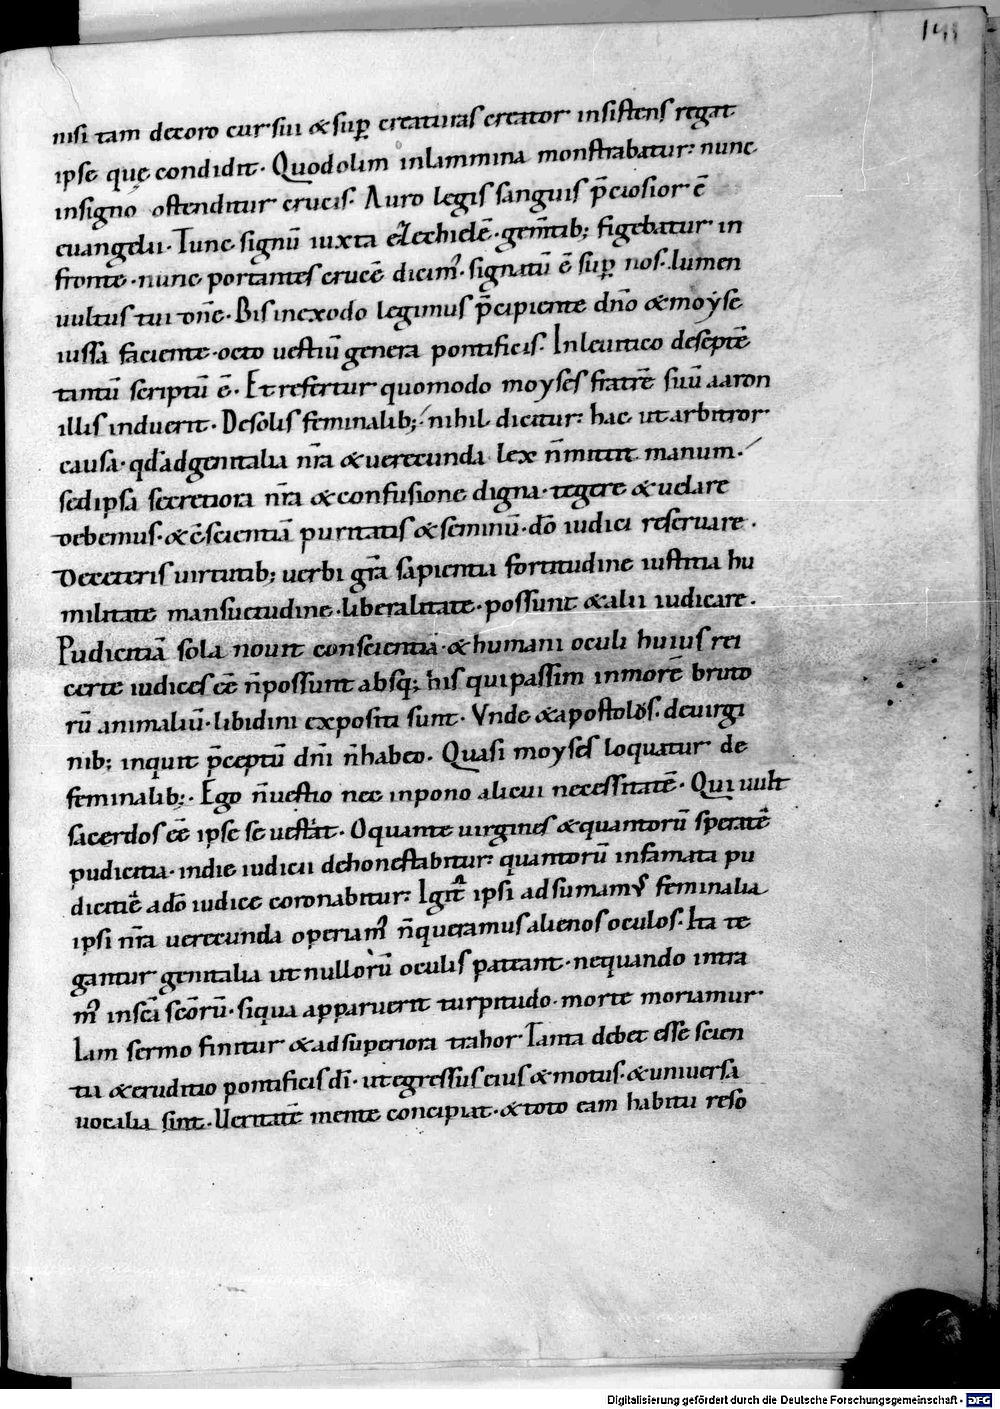 141
nisi tam decoro cursui & suꝑ creaturas creator insistens regat
ipse quę condidit. Quod olim inlammina monstrabatur: nunc
insigno ostenditur crucis. Auro legis sanguis p̄ciosior ē
euangelii. Tunc signū iuxta ezechielē. gem̄tib; figebatur in
fronte. nunc portantes crucē dicim᷒. signatū ē suꝑ nos. lumen
uultus tui dn̄e. Bis inexodo legimus p̄cipiente dn̄o & moẏse
iussa faciente. octo uestiū genera pontificis. Inleuitico deseptē
tantū scriptū ē. Et refertur quomodo moyses fratrē suū aaron
illis induerit. Desolis feminalib; nihil dicitur: hac ut arbitror
causa. qd adgenitalia nr̄a & uerecunda lex n̄ mittit manum.
sed ipsa secretiora nr̄a & confusione digna. tegere & uelare
debemus. & c̄scientiā puritatis & seminū. dō iudici reseruare.
Deceteris uirtutib; uerbi gr̄a sapientia fortitudine iustitia hu
militate mansuetudine. liberalitate. possunt & alii iudicare.
Pudicitiā sola nouit conscientia. & humani oculi huius rei
certe iudices eē n̄ possunt absq; his qui passim inmorē bruto
rū animaliū. libidini expositi sunt. Vnde & apostolus. deuirgi
nib; inquit p̄ceptū dn̄i n̄ habeo. Quasi moyses loquatur de
feminalib;. Ego n̄ uestio nec inpono alicui necessitatē. Qui uult
sacerdos eē ipse se uestiat. O quante uirgines & quantorū speratę
pudicitia. indie iudicii dehonestabitur: quantorū infamata pu
dicitię a dō iudice coronabitur: Igit᷒ ipsi adsumam᷒ feminalia
ipsi nr̄a uerecunda operiam᷒ n̄ queramus alienos oculos. Ita te
gantur genitalia ut nullorū oculis pateant. nequando intra
m᷒ insc̄a sc̄orū. siqua apparuerit turpitudo. morte moriamur.
Iam sermo finitur & adsuperiora trahor. Tanta debet esse scien
tia & eruditio pontificis dī. ut egressus eius & motus. & uniuersa
uocalia sint. Ueritatē mente concipiat. & toto eam habitu reso
Digitalisierung gefördert durch die Deutsche Forschungsgemeinschaft - DFG